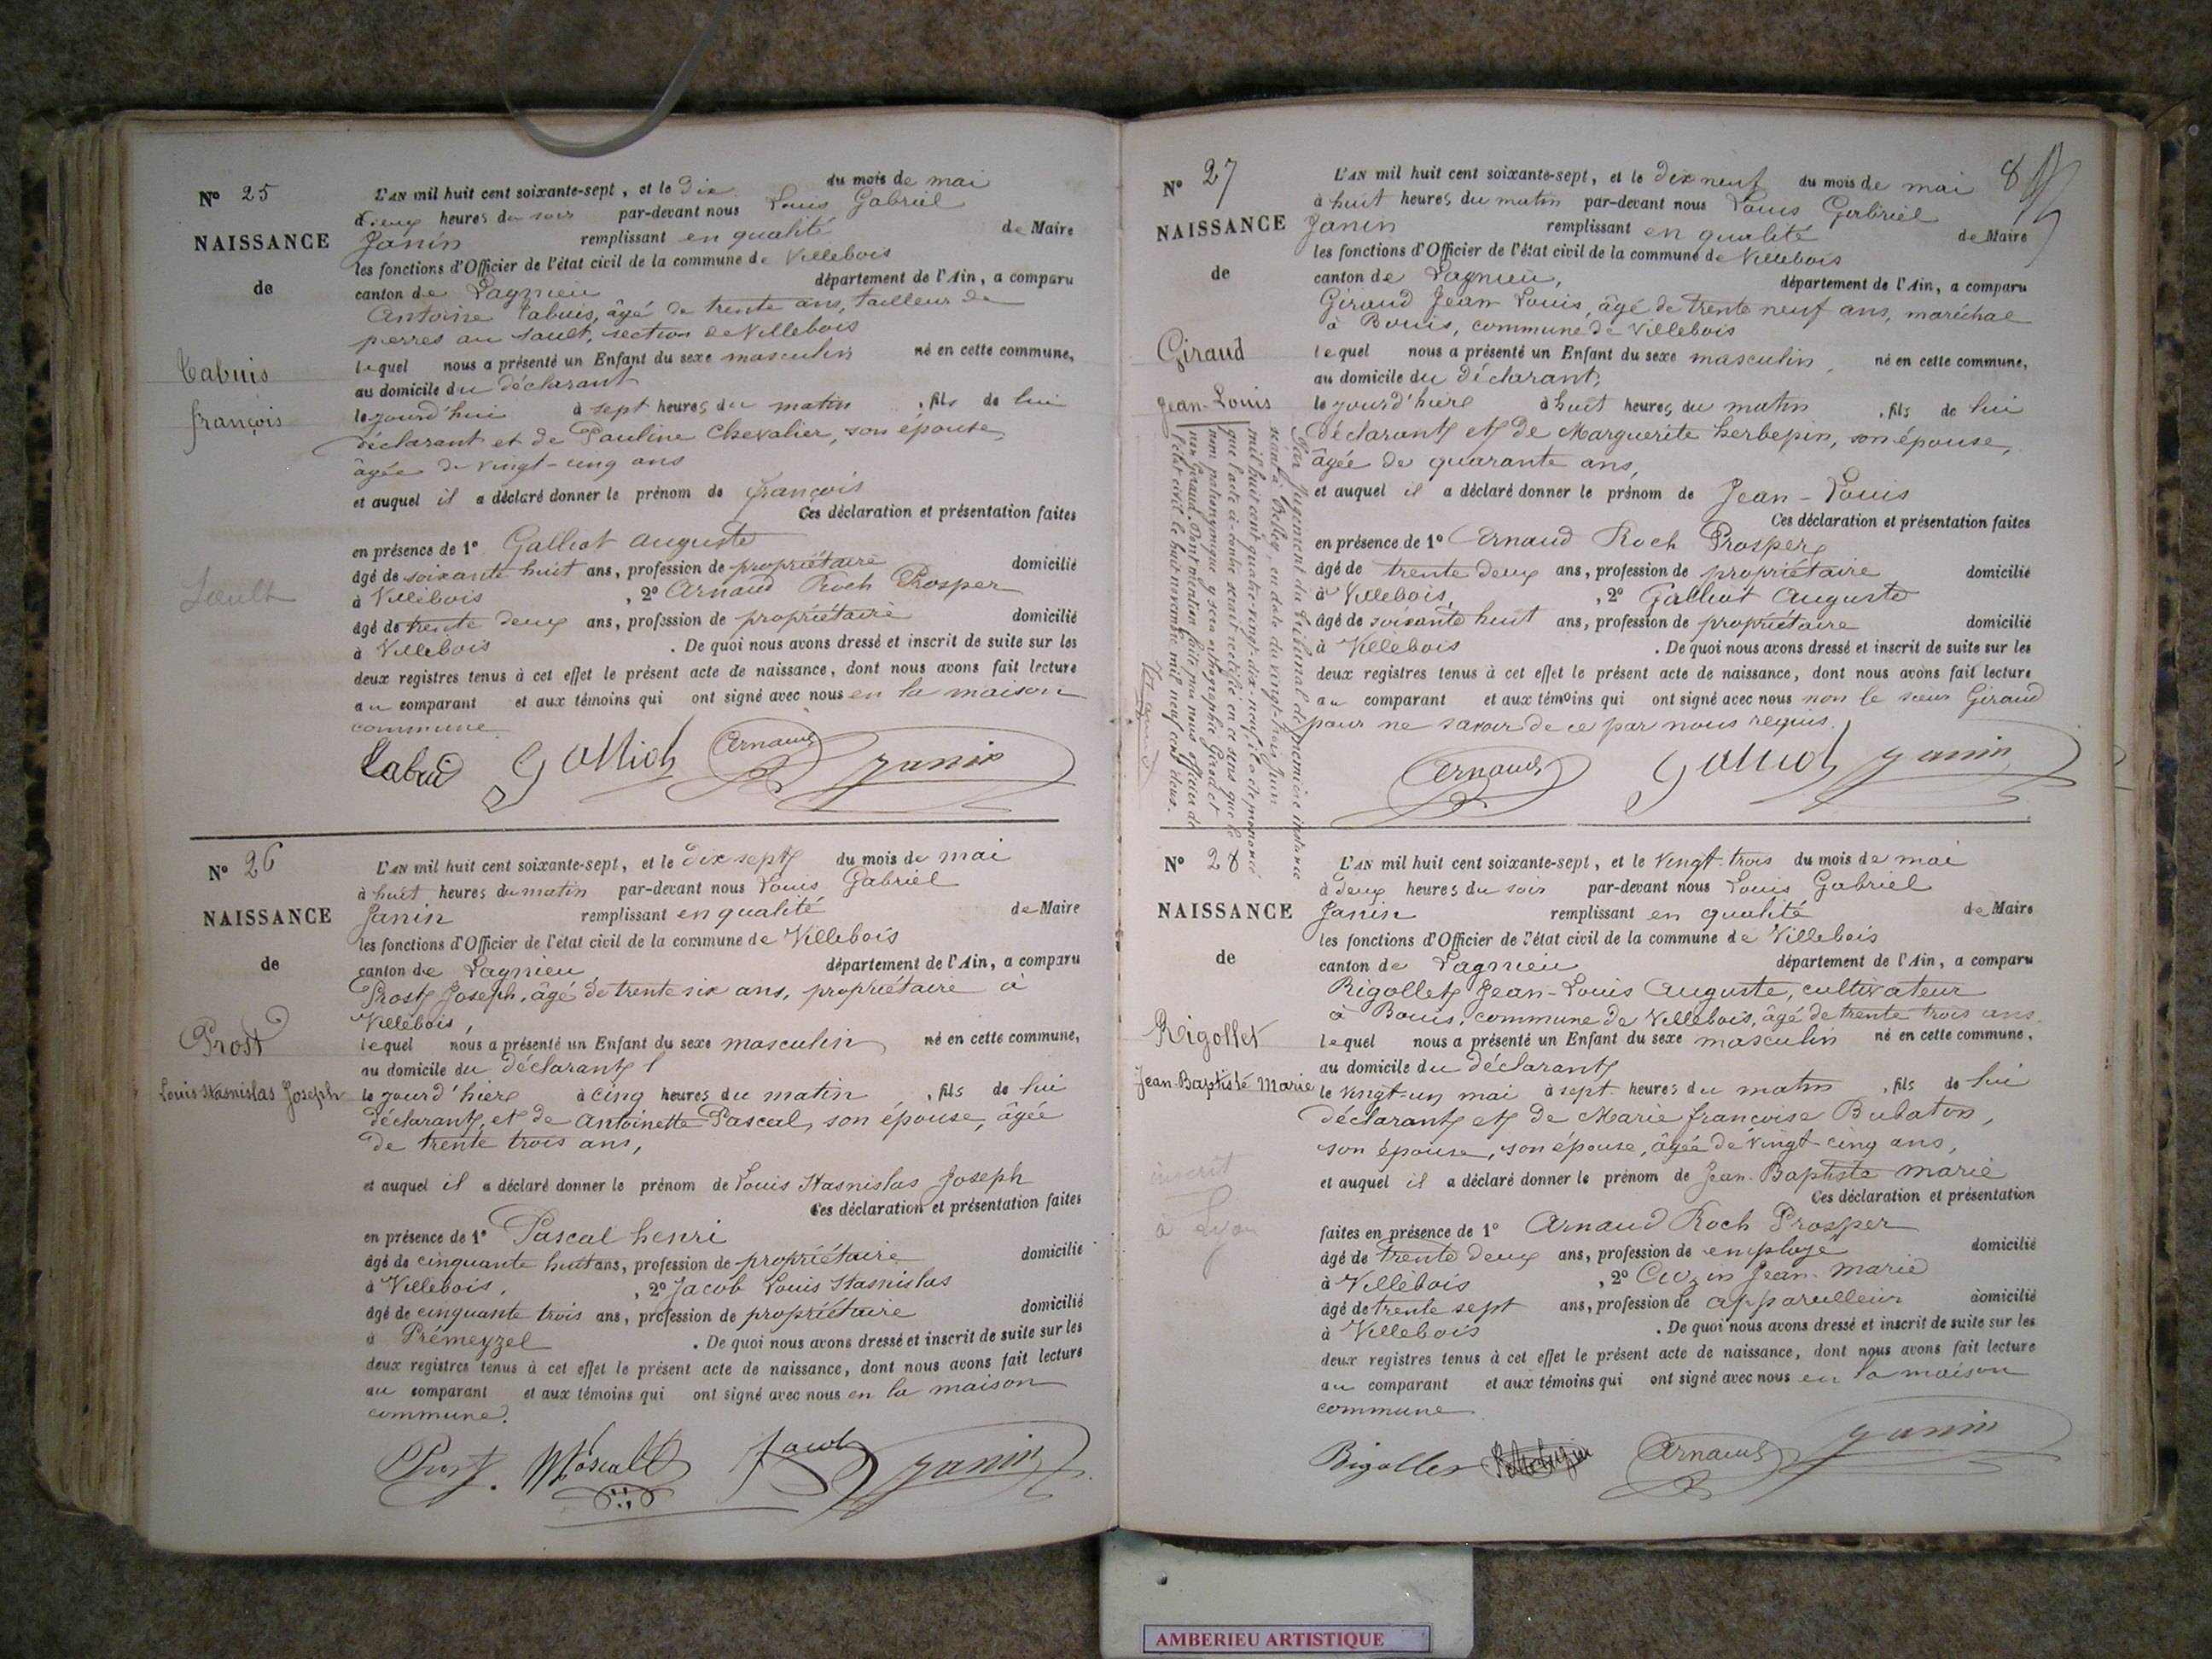 N° 25
NAISSANCE
de
Tabuis
françois
Sault
L'AN mil huit cent soixante-sept, et le Dix du mois de mai
à Deux heures du soir par-devant nous Louis Gabriel
Janin remplissant en qualité de Maire
les fonctions d'Officier de l'état civil de la commune de Villebois
canton de Lagnieu département de l'Ain, a comparu
Antoine Tabuis, âgé de trente ans, tailleur de
pierres au Sault, section de Villebois
lequel nous a présenté un Enfant du sexe masculin né en cette commune,
au domicile du déclarant
le jourd'hui à sept heures du matin , fils de lui
déclarant et de Pauline Chevalier, son épouse,
âgée de vingt-cinq ans
et auquel il a déclaré donner le prénom de françois
Ces déclaration et présentation faites
en présence de 1° Galliot auguste
âgé de soixante huit ans, profession de propriétaire domicilié
à Villebois , 2° Arnaud Roch Prosper
âgé de trente deux ans, profession de propriétaire domicilié
à Villebois . De quoi nous avons dressé et inscrit de suite sur les
deux registres tenus à cet effet le présent acte de naissance, dont nous avons fait lecture
au comparant et aux témoins qui ont signé avec nous en la maison
commune.
Tabuis Galliot Arnaud Janin
N° 26
NAISSANCE
de
Prost
Louis Stasnislas Joseph
L'AN mil huit cent soixante-sept, et le dix sept du mois de mai
à huit heures du matin par-devant nous Louis Gabriel
Janin remplissant en qualité de Maire
les fonctions d'Officier de l'état civil de la commune de Villebois
canton de Lagnieu département de l'Ain, a comparu
Prost Joseph, âgé de trente six ans, propriétaire à
Villebois,
lequel nous a présenté un Enfant du sexe masculin, né en cette commune,
au domicile du déclarant
le jourd'hier à cinq heures du matin , fils de lui
déclarant, et de Antoinette Pascal, son épouse, âgée
de trente trois ans,
et auquel il a déclaré donner le prénom de Louis Stasnislas Joseph
Ces déclaration et présentation faites
en présence de 1° Pascal henri
âgé de cinquante huit ans, profession de propriétaire domicilié
à Villebois, , 2° Jacob Louis Stasnislas
âgé de cinquante trois ans, profession de propriétaire domicilié
à Prémeyzel . De quoi nous avons dressé et inscrit de suite sur les
deux registres tenus à cet effet le présent acte de naissance, dont nous avons fait lecture
au comparant et aux témoins qui ont signé avec nous en la maison
commune.
Prost. Pascal Jacob Janin
8
N° 27
NAISSANCE
de
Giraud
Jean-Louis
Par Jugement du tribunal de première instance
séant à Belley, en date du vingt-trois Juin
mil huit cent quatre-vingt-dix-neuf, il a été prononcé
que l'acte ci-contre serait rectifié en ce sens que le
nom patronymique y sera orthographié Girod et
non Giraud. Dont mention faite par nous officier de
l'état civil le huit novembre mil neuf cent deux.
L'AN mil huit cent soixante-sept, et le dix neuf du mois de mai
à huit heures du matin par-devant nous Louis Gabriel
Janin remplissant en qualité de Maire
les fonctions d'Officier de l'état civil de la commune de Villebois
canton de Lagnieu, département de l'Ain, a comparu
Giraud Jean Louis, âgé de trente neuf ans, maréchal
à Bouis, commune de Villebois
lequel nous a présenté un Enfant du sexe masculin, né en cette commune,
au domicile du déclarant,
le jourd'hière à huit heures du matin , fils de lui
déclarant et de Marguerite herbepin, son épouse,
âgée de quarante ans,
et auquel il a déclaré donner le prénom de Jean-Louis
Ces déclaration et présentation faites
en présence de 1° Arnaud Roch Prosper
âgé de trente deux ans, profession de propriétaire domicilié
à Villebois, , 2° Galliot Auguste
âgé de soixante huit ans, profession de propriétaire domicilié
à Villebois . De quoi nous avons dressé et inscrit de suite sur les
deux registres tenus à cet effet le présent acte de naissance, dont nous avons fait lecture
au comparant et aux témoins qui ont signé avec nous non le sieur Giraud
pour ne savoir de ce par nous requis.
Arnaud Galliot Janin
N° 28
NAISSANCE
de
Rigollet
Jean-Baptiste Marie
inscrit
à Lyon
L'AN mil huit cent soixante-sept, et le vingt-trois du mois de mai
à deux heures du soir par-devant nous Louis Gabriel
Janin remplissant en qualité de Maire
les fonctions d'Officier de l'état civil de la commune de Villebois
canton de Lagnieu département de l'Ain, a comparu
Rigollet Jean-Louis Auguste, cultivateur
à Bouis, commune de Villebois, âgé de trente trois ans
lequel nous a présenté un Enfant du sexe masculin né en cette commune,
au domicile du déclarant
le vingt-un mai à sept heures du matin , fils de lui
déclarant et de Marie françoise Bubaton,
son épouse, son épouse, âgée de vingt-cinq ans,
et auquel il a déclaré donner le prénom de Jean-Baptiste marie
Ces déclaration et présentation
faites en présence de 1° Arnaud Roch Prosper
âgé de trente deux ans, profession de employé domicilié
à Villebois , 2° Cuzin Jean-marie
âgé de trente sept ans, profession de appareilleur domicilié
à Villebois . De quoi nous avons dressé et inscrit de suite sur les
deux registres tenus à cet effet le présent acte de naissance, dont nous avons fait lecture
au comparant et aux témoins qui ont signé avec nous en la maison
commune
Rigollet Arnaud Janin
AMBERIEU ARTISTIQUE